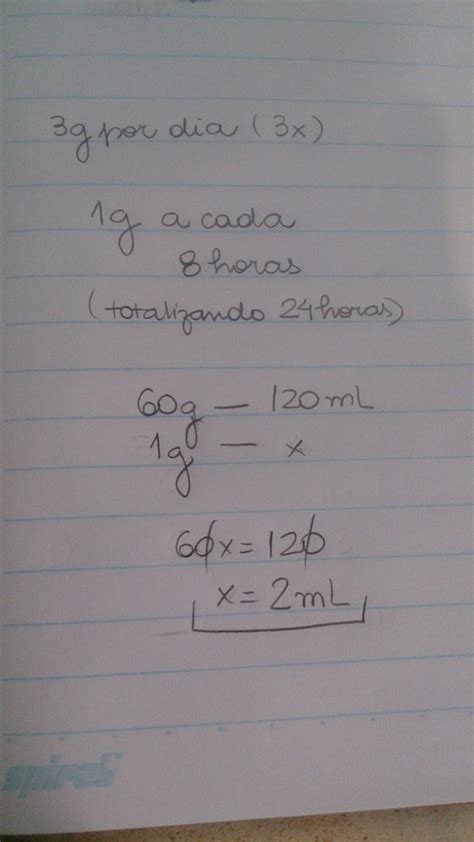 3g por dia (3x)
1g a cada
8 horas
(totalizando 24 horas)
60g — 120 mL
1g — x
60x = 120
x = 2 mL
spiral